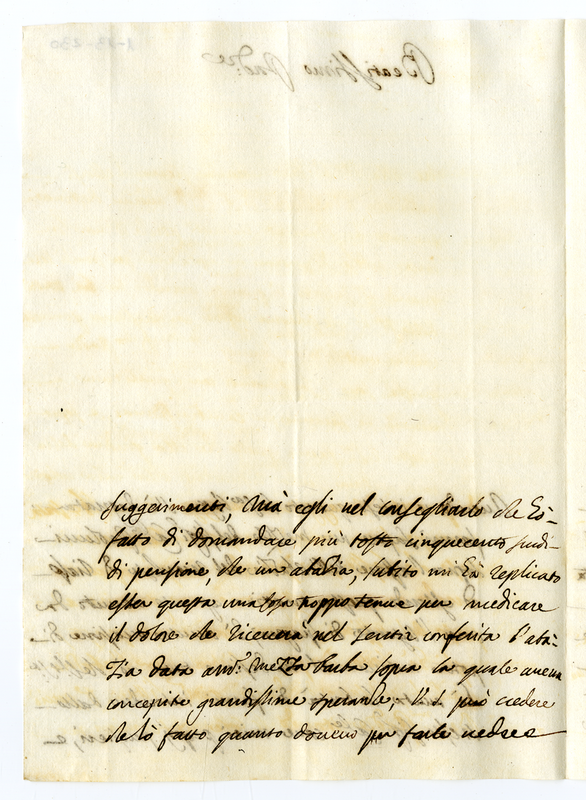 suggerimenti, Mà egli nel consegliarlo che hò
fatto di domandare più tosto cinquecento scudi
di pensione, che un abadia, subito mi hà replicato
esser questa una cosa troppo tenue per medicare
il dolore che riceverà nel sentir conferita l'aba-
zia data a Mezza barba sopra la quale aveva
concepite grandissime speranze. V. S. può credere
che hò fatto quanto dovevo per farle vedere